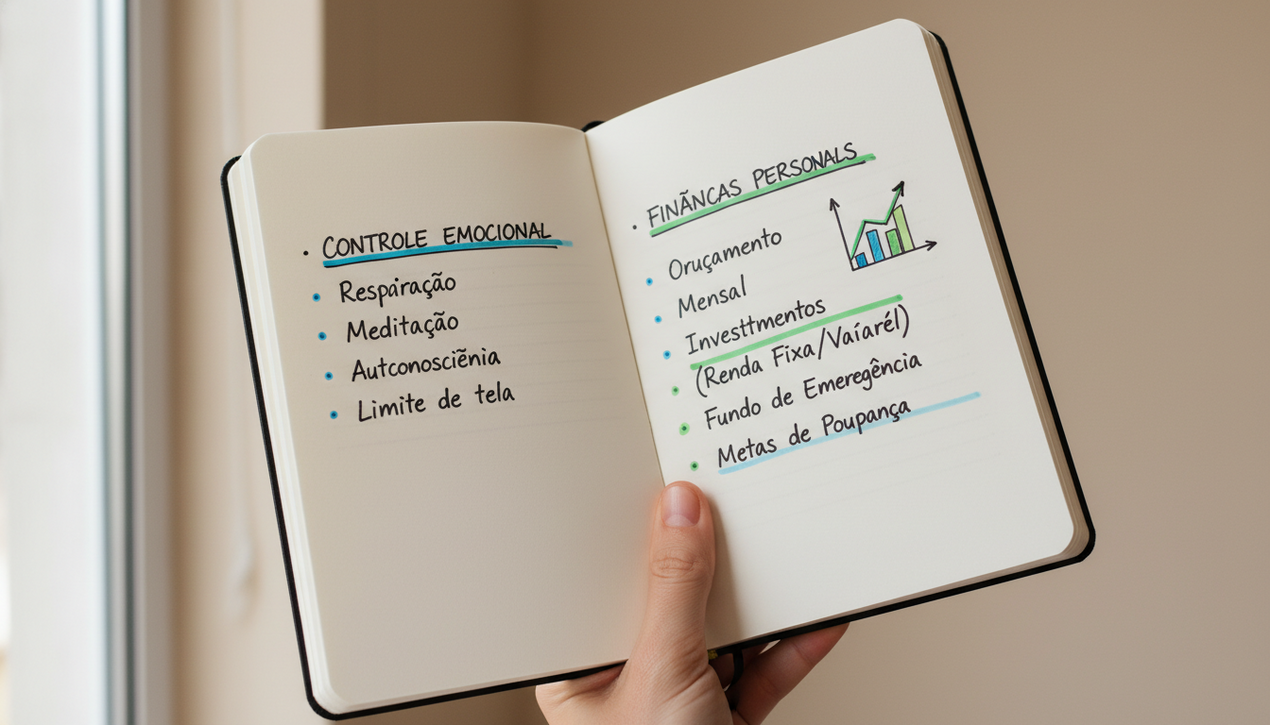 CONTROLE EMOCIONAL
Respiração
Meditação
Autconosciẽnia
Limite de tela
FINÃNCAS PERSONALS
Oruçamento
Mensal
Investtmentos
(Renda Fixa/Vaíarél)
Fundo de Emeregência
Metas de Poupança